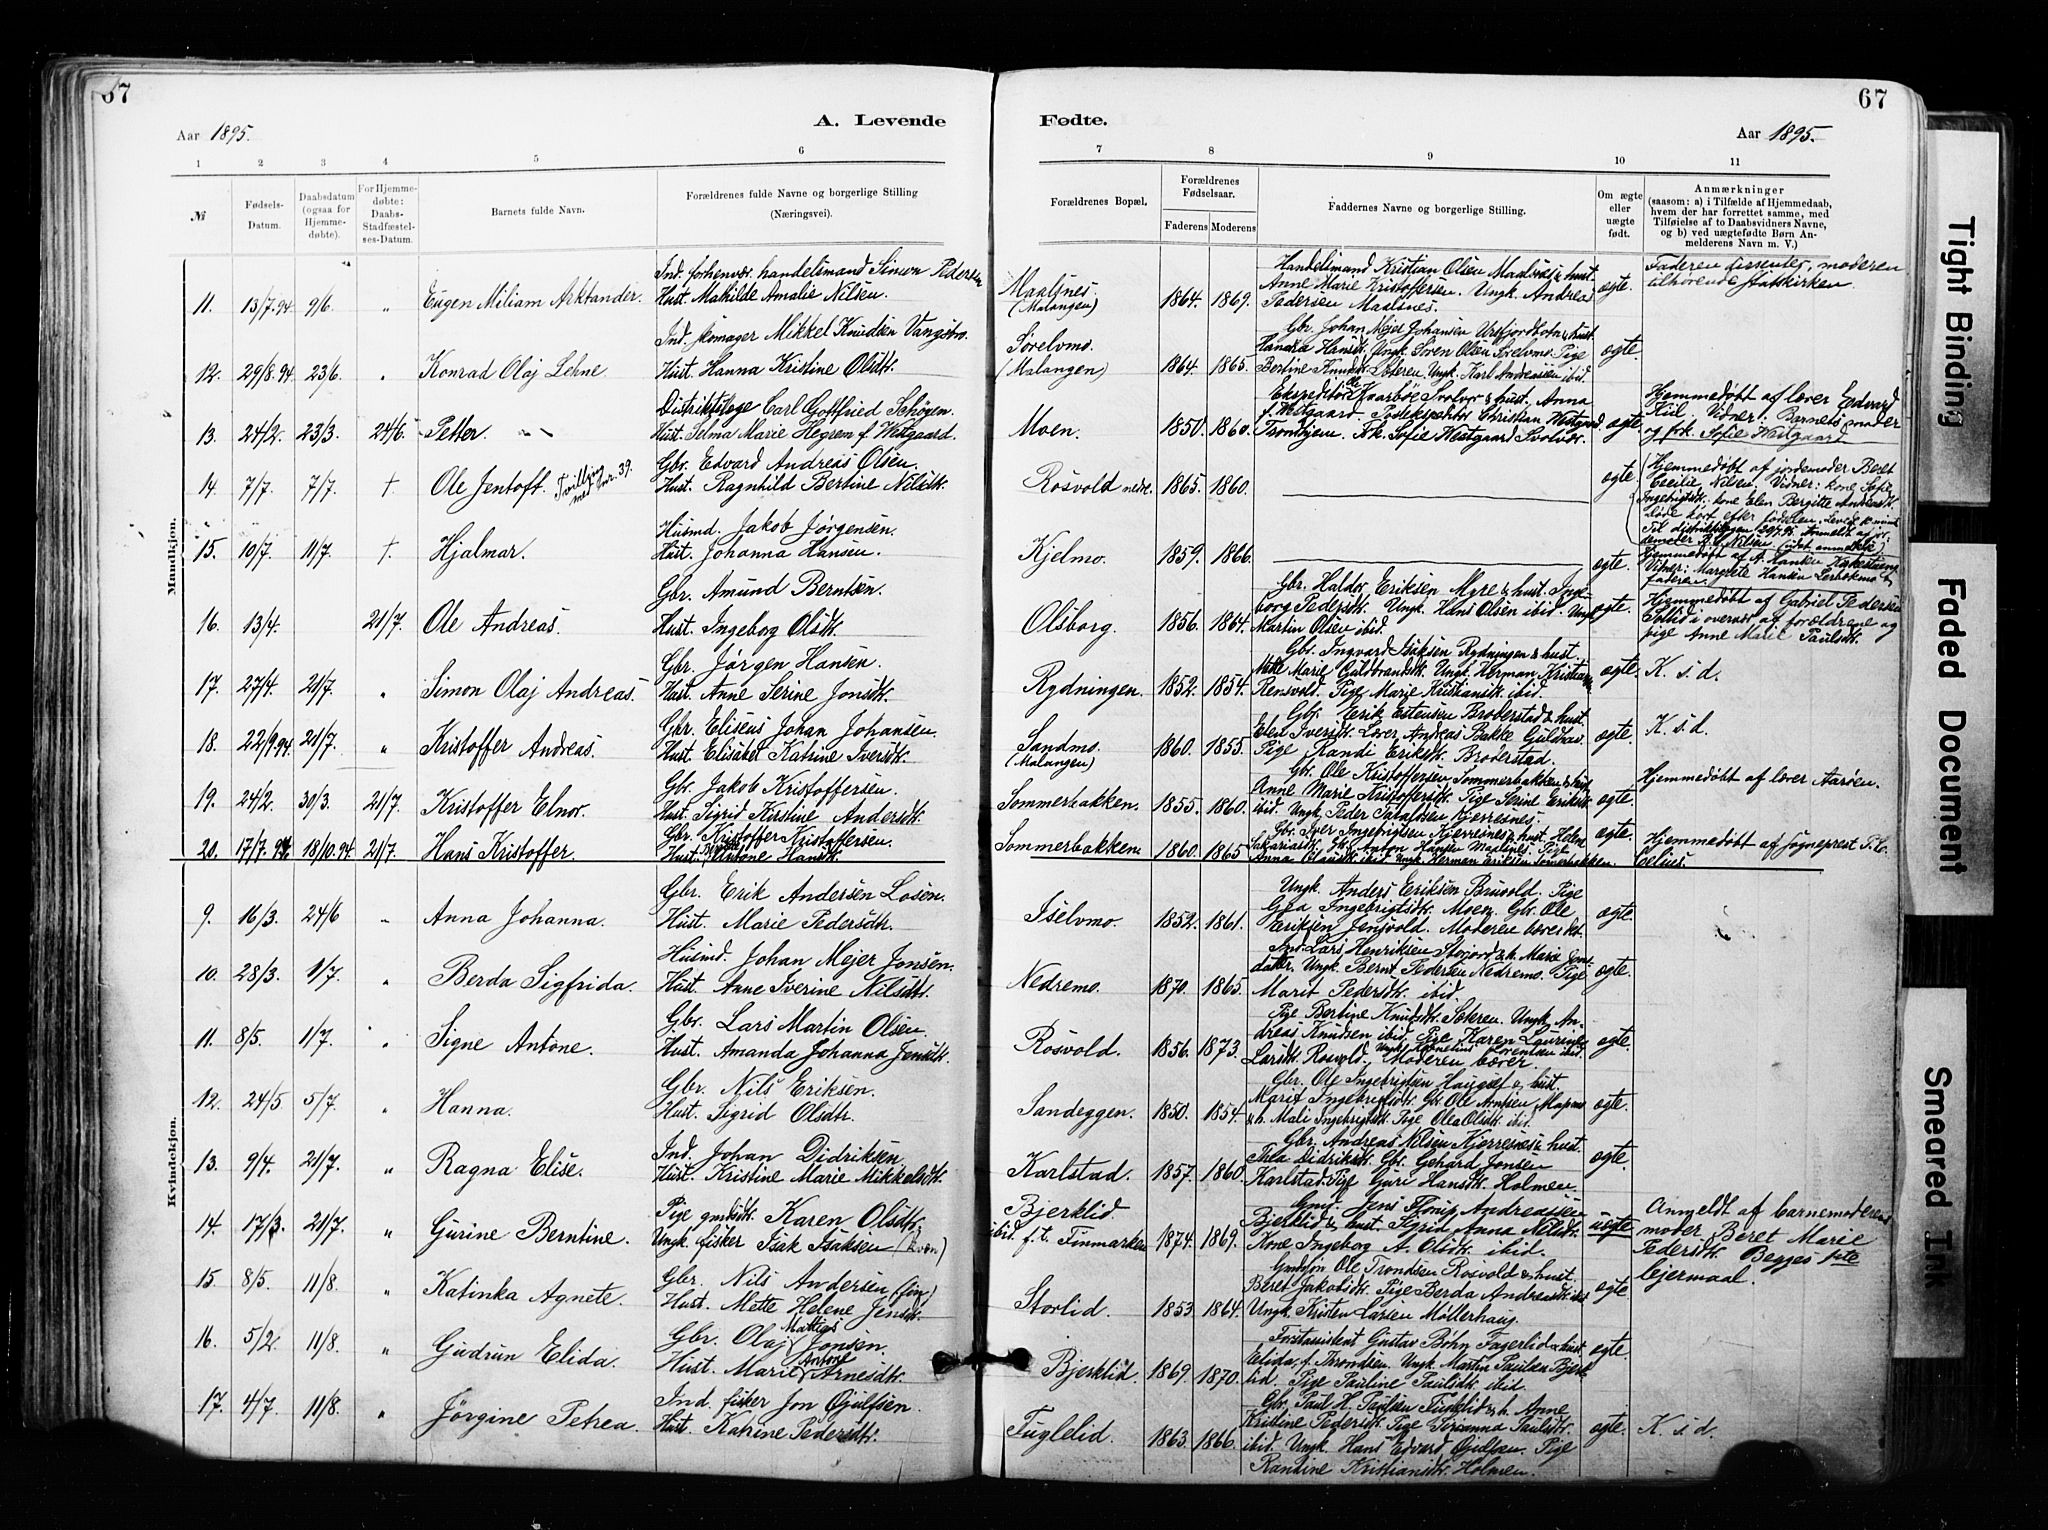 67
67
A. Levende Fødte.
Aar 1895.
Aar 1895.
1 2 3 4 5 6 7 8 9 10 11
№
Fødsels-Datum.
Daabsdatum (ogsaa for Hjemme-døbte).
For Hjemme-døbte: Daabs-Stadfæstel-ses-Datum.
Barnets fulde Navn.
Forældrenes fulde Navne og borgerlige Stilling (Næringsvei).
Forældrenes Bopæl.
Forældrenes Fødselsaar.
Faderens Moderens
Faddernes Navne og borgerlige Stilling.
Om ægte eller uægte født.
Anmærkninger
(saasom: a) i Tilfælde af Hjemmedaab, hvem der har forrettet samme, med Tilføielse af to Daabsvidners Navne, og b) ved uægtefødte Børn An-melderens Navn m. V.)
Mandkjøn.
11. 13/7.94 9/6. " Eugen Miliam Arktander. Ind. forhenvær. handelsmand Simon Pedersen Hust. Mathilde Amalie Nilsen. Maalsnes. (Malangen) 1864. 1869. Handelsmand Kristian Olsen Maalsnes & hust. Anne Marie Kristoffersen. Ungk. Andreas Pedersen Maalsnes. ægte. Faderen dissenter, moderen tilhørende statskirken
12. 29/8.94. 23/6. " Konrad Olaj Lehne. Ind. skomager Mikkel Knudsen Vangsbro. Hust. Hanna Kristine Olsdtr. Sørelvmo. (Malangen) 1864. 1865. Gbr. Johan Mejer Johansen & hust. Ungk. Søren Olsen Sørelvmo. Pige Bertine Knudsdtr. Ungk. Karl Andreassen ibid. ægte.
13. 24/2. 23/3. 24/6. Petter. Distriktslæge Carl Gottfried Schøgen. Hust. Selma Marie Hegrem f. Westgaard. Moen. 1850. 1860. Kaarbøe Svolvær & hust. Anna f. Westgaard. Postekspeditør Christian Westgaard Trondhjem. Frk. Sofie Westgaard Svolvær. ægte. Hjemmedøbt af lærer Edvard Kiil. Vidner: Barnets moder og frk. Sofie Westgaard
14. 7/7. 7/7. † Ole Jentoft. Tvilling med nr. 39. Gbr. Edvard Andreas Olsen. Hust. Ragnhild Bertine Nilsdtr. Rosvold nedre. 1865. 1860. ægte. Hjemmedøbt af jordemoder Beret Cecilie Nilsen. Vidner: kone Sofie Ingebrigtsdtr. kone Elen Bergitte Andersdtr. Døde kort efter fødselen.
15. 10/7. 11/7. † Hjalmar. Husmd. Jakob Jørgensen. Hust. Johanna Hansen. Kjelmo. 1859. 1866. ægte. Hjemmedøbt af A. Hanku Vidner: Margrete Hanku & faderen.
16. 13/4. 21/7. Ole Andreas. Gbr. Amund Berntsen. Hust. Ingeborg Olsdtr. Olsborg. 1856. 1864. Gbr. Haldor Eriksen Myre & hust. Ingeborg Pedersdtr. Ungk. Hans Olsen ibid. Ungk. Martin Olsen ibid. ægte. Hjemmedøbt af Gabriel Pedersen Sollid i overvær af forældrene og pige Anne Marie Paulsdtr.
17. 27/4. 21/7. " Simon Olaj Andreas. Gbr. Jørgen Hansen. Hust. Anne Serine Jonsdtr. Rydningen. 1852. 1854. Gbr. Ingvard Isaksen Rydningen & hust. Marie Guldbrandsdtr. Ungk. Herman Kristian Rensvold. Pige Marie Kristiansdtr. ibid. ægte. K. s. d.
18. 22/9.94. 21/7. " Kristoffer Andreas. Gbr. Eliseus Johan Johansen. Hust. Elisabet Katrine Iversdtr. Sandmo. (Malangen) 1860. 1855. Gbr. Erik Estensen Broderstad & hust. Elen Iversdtr. Lærer Andreas Bakke Guldhav. Pige Randi Eriksdtr. Broderstad. ægte. K. s. d.
19. 24/2. 30/3. 21/7. Kristoffer Elnor. Gbr. Jakob Kristoffersen. Hust. Sigrid Kirstine Andersdtr. Sommerbakken. 1855. 1860. Gbr. Ole Kristoffersen Sommerbakken & hust. Anne Marie Kristoffersdtr. Pige Serine Eriksdtr. ibid. Ungk. Peder Kjerresnes. ægte. Hjemmedøbt af lærer Aarøen.
20. 17/7.94. 18/10.94. 21/7. Hans Kristoffer. Gbr. Kristoffer Kristoffersen. Hust. Antone Hansdtr. Sommerbakken. 1860. 1865 Gbr. Iver Ingebrigtsen Kjerresnes & hust. Helene Sakariasdtr. Gbr. Anton Hansen Maalsnes. Pige Anna Olausdtr. ibid. Ungk. Herman Eriksen Sommerbakken. ægte. Hjemmedøbt af sogneprest
Kvindekjøn.
9. 16/3. 24/6 " Anna Johanna. Gbr. Erik Andersen Løsen. Hust. Marie Pedersdtr. Iselvmo. 1852. 1861. Ungk. Anders Eriksen Bruvold. Pige Gea Ingebrigtsdtr. Moen. Gbr. Ole Eriksen Jensvold. Moderen bærer kt. ægte.
10. 28/3. 1/7. " Berda Sigfrida. Husmd. Johan Mejer Jonsen. Hust. Anne Iverine Nilsdtr. Nedremo. 1870. 1865. Ind. Lars Henriksen Storjord & h. Marie Ungk. Bernt Pedersen Nedremo. Pige Marit Pedersdtr. ibid. ægte.
11. 8/5. 1/7. " Signe Antone. Gbr. Lars Martin Olsen. Hust. Amanda Johanna Jensdtr. Rosvold. 1856. 1873. Pige Bertine Knudsdtr. Ungk. Andreas Knudsen ibid. Pige Karen Laurine Larsdtr. Rosvold. Ungk. Kornelius Lorentsen ibid. Moderen bærer. ægte.
12. 24/5. 5/7. " Hanna. Gbr. Nils Eriksen. Hust. Sigrid Olsdtr. Sandeggen. 1850. 1854. Gbr. Ole Ingebrigtsen Haugset & hust. Marit Ingebrigtsdtr. Gbr. Ole Arntsen & h. Mali Ingebrigtsdtr. Pige Olea Olsdtr. ibid. ægte.
13. 9/4. 21/7. " Ragna Elise. Ind. Johan Didriksen. Hust. Kristine Marie Mikkelsdtr. Karlstad. 1857. 1860. Gbr. Andreas Nilsen Kjerresnes & hust. Thea Didriksdtr. Gbr. Gehard Jonsen Karlstad. Pige Guri Hansdtr. Holmen. ægte.
14. 17/3. 21/7. " Gurine Berntine. Pige gmdsdtr. Karen Olsdtr. Ungk. fisker Isak Isaksen (kvæn) Bjerklid. ibid. f.t. Finmarken 1874. 1869. Gmd. Jens Andreassen Bjerklid & hust. Sigrid Anna Nilsdtr. Kone Ingeborg A. Olsdtr. ibid. uægte Anmeldt af barnemoderens moder Beret Marie Pedersdtr. Begges 1ste lejermaal.
15. 8/5. 11/8. " Katinka Agnete. Gbr. Nils Andersen (fin) Hust. Mette Helene Jensdtr. Storlid. 1853. 1864. Gmdsøn Ole Trondsen Rosvold & hust. Beret Jakobsdtr. Pige Berda Andreasdtr. ibid. Ungk. Kristen Larsen Møllerhaug. ægte.
16. 5/2. 11/8. " Gudrun Elida. Gbr. Olaj Mattias Jonsen. Hust. Marie Antone Arnesdtr. Bjerklid. 1869. 1870. Forstassistent Gustav Bøhn Fagerlid & hust. Elida, f. Throndsen. Ungk. Martin Paulsen Bjerklid. Pige Pauline Paulsdtr. ibid. ægte.
17. 4/7. 11/8. " Jørgine Petrea. Ind. fisker Jon Gjulfsen. Hust. Katrine Pedersdtr. Fuglelid. 1863. 1866. Gbr. Paul H. Paulsen & h. Anne Kristine Pedersdtr. Pige Johanna Paulsdtr. ibid. Ungk. Hans Edvard Gjulfsen. Pige Randine Kristiansdtr. Holmen. ægte. K. s. d.
Tight Binding
Faded Document
Smeared Ink